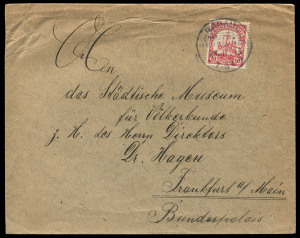 An
das Städtische Museum
für Völkerkunde
z. H. des Herrn Direktors
Dr. Hagen
Frankfurt a/Main
Bundespalais